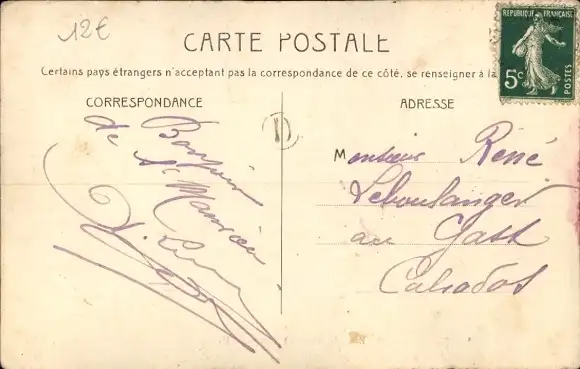 12€
CARTE POSTALE
RÉPUBLIQUE FRANÇAISE
5c
POSTES
Certains pays étrangers n'acceptant pas la correspondance de ce côté, se renseigner à la
CORRESPONDANCE
ADRESSE
D
Bonjour
de St
Monsieur René
Leboulanger
au Gast
Calvados